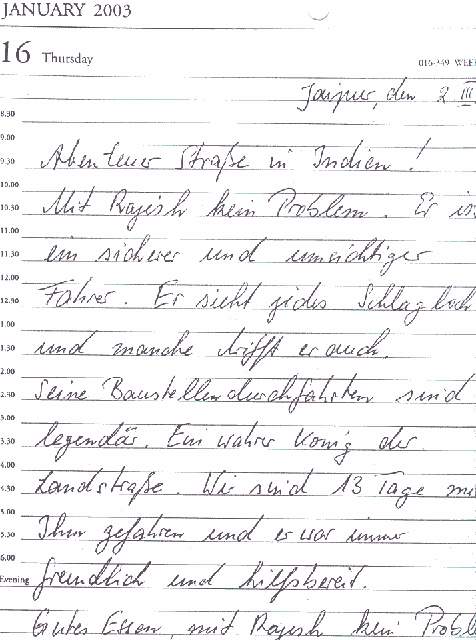 JANUARY 2003
16 Thursday
016-349 WEE
Jaipur, den 2 III
8.30
9.00
9.30 Abenteuer Straße in Indien!
10.00
10.30 Mit Rajesh kein Problem. Er is
11.00
11.30 ein sicherer und umsichtiger
12.00
12.30 Fahrer. Er sieht jedes Schlagloch
1.00
1.30 und manche trifft er auch.
2.00
2.30 Seine Baustellendurchfahrten sind
3.00
3.30 legendär. Ein wahrer König der
4.00
4.30 Landstraße. Wir sind 13 Tage mi
5.00
5.30 Ihm gefahren und er war immer
6.00
Evening freundlich und hilfsbereit.
Gutes Essen, mit Rajesh kein Probl